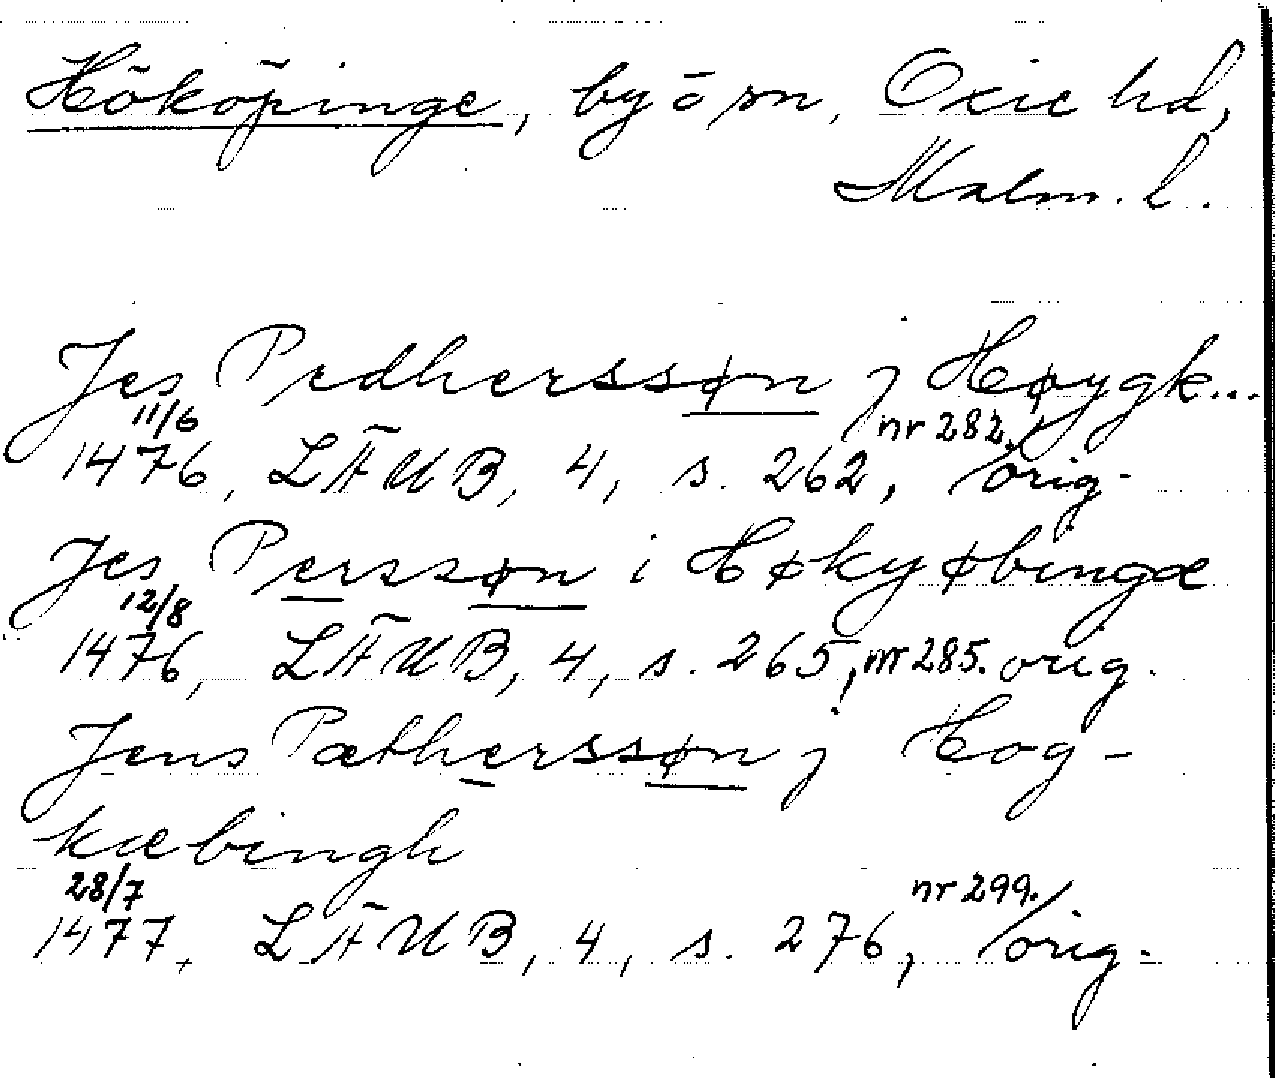 Hököpinge, by o sn, Oxie hd,
Malm. l.
Jes Pedherssøn j Høygk...
11/6 nr 282.
1476, LÄUB, 4, s. 262, orig.
Jes Perssøn i Høkyøbingæ
12/8
1476, LÄUB, 4, s. 265, nr 285. orig.
Jens Pætherssøn j Hog-
kæbingh
28/7 nr 299.
1477, LÄUB, 4, s. 276, orig.